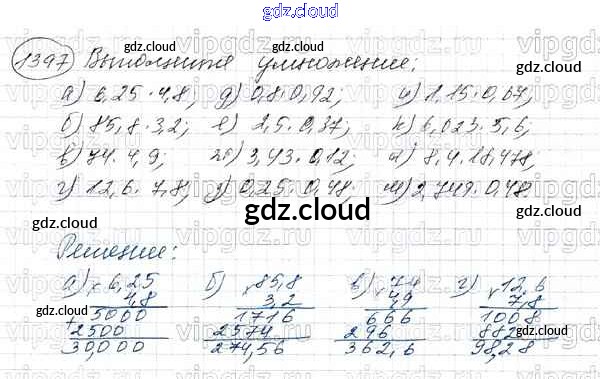 gdz.cloud
1397 Выполните умножение:
а) 6,25 · 4,8; д) 0,8 · 0,92; и) 1,15 · 0,67;
б) 85,8 · 3,2; е) 2,5 · 0,37; к) 6,023 · 5,6;
в) 74 · 4,9; ж) 3,43 · 0,12; л) 8,4 · 18,478;
г) 12,6 · 7,8; з) 0,25 · 0,48; м) 2,749 · 0,48.
gdz.cloud
Решение:
а) × 6,25 б) × 85,8 в) × 74 г) × 12,6
4,8 3,2 4,9 7,8
+ 5000 1716 666 1008
2500 2574 296 882
30,000 274,56 362,6 98,28